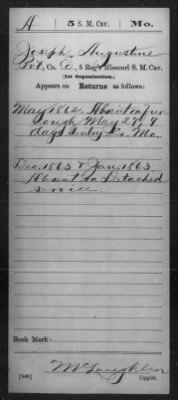 A | 5 S. M. Cav. | Mo.
Joseph Augustine
Pvt, Co. C, 5 Reg't Missouri S. M. Cav.
(1st Organization.)
Appears on Returns as follows:
May 1862. Absent on fur-
lough May 27, 9
days Gentry Co. Mo.
Dec. 1862 & Jan. 1863
Absent on Detached
service.
Book Mark:
McLaughlin
(546) Copyist.